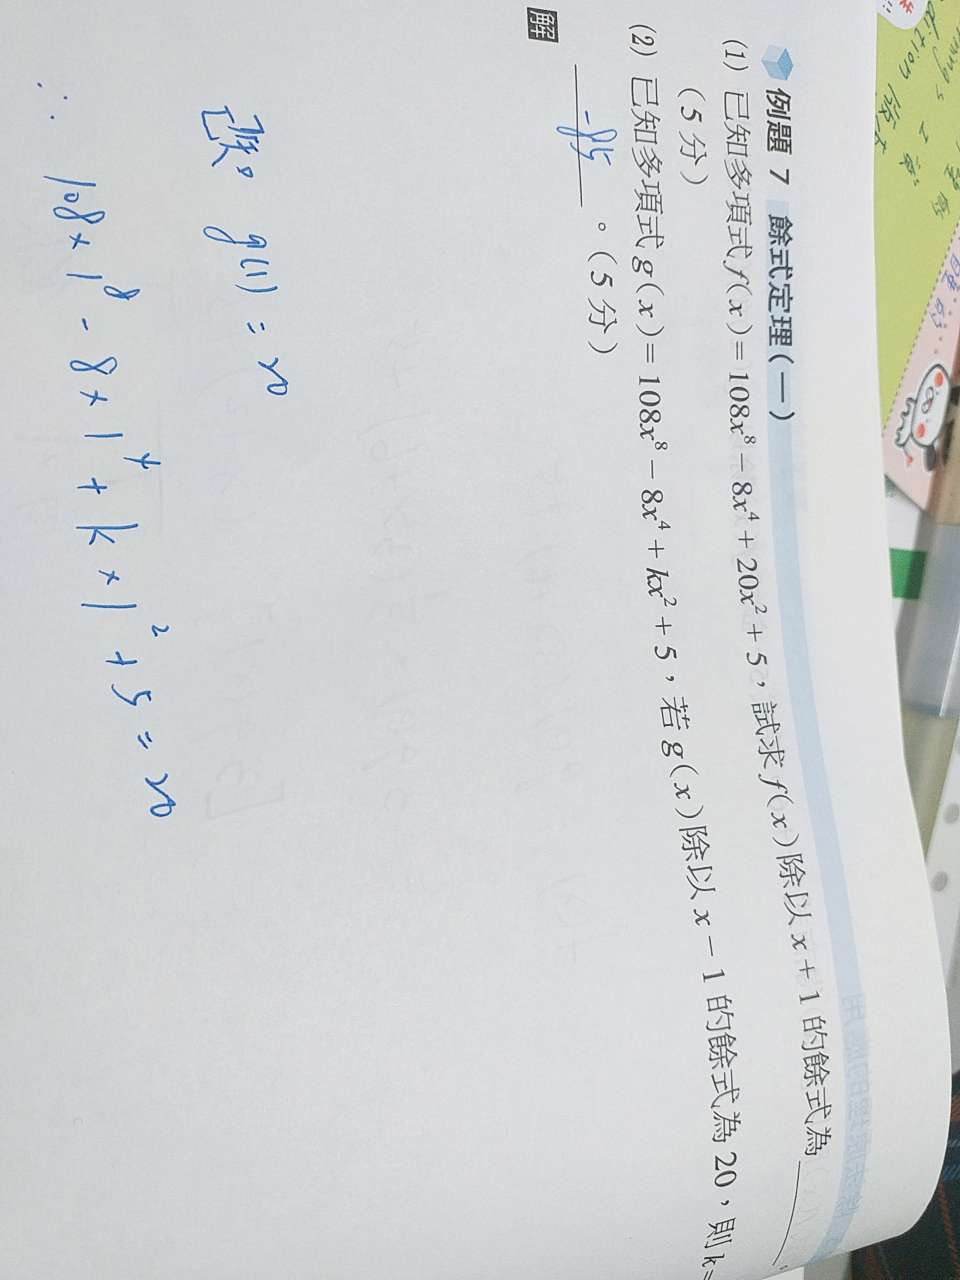 例題 7 餘式定理(一)
(1) 已知多項式 f(x) = 108x⁸ − 8x⁴ + 20x² + 5，試求 f(x) 除以 x + 1 的餘式為______。
(5 分)
(2) 已知多項式 g(x) = 108x⁸ − 8x⁴ + kx² + 5，若 g(x) 除以 x − 1 的餘式為 20，則 k =
-85 。(5 分)
解
g(1) = 20
∴ 108 × 1⁸ - 8 × 1⁴ + k × 1² + 5 = 20
dition